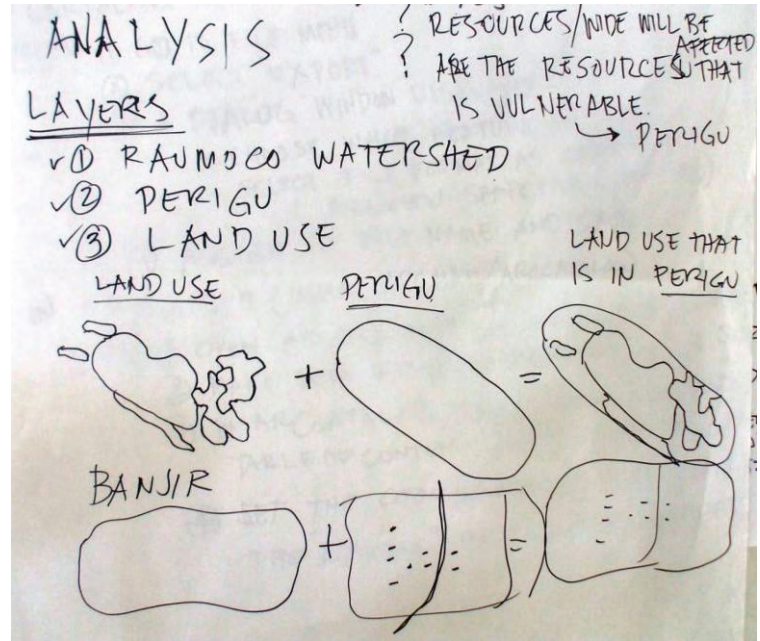 ANALYSIS
? RESOURCES/WIDE WILL BE AFFECTED
? ARE THE RESOURCES THAT
IS VULNERABLE.
→ PERIGU
LAYERS
✓① RAUMOCO WATERSHED
✓② PERIGU
✓③ LAND USE
LAND USE
PERIGU
LAND USE THAT
IS IN PERIGU
+
=
BANJIR
+
=